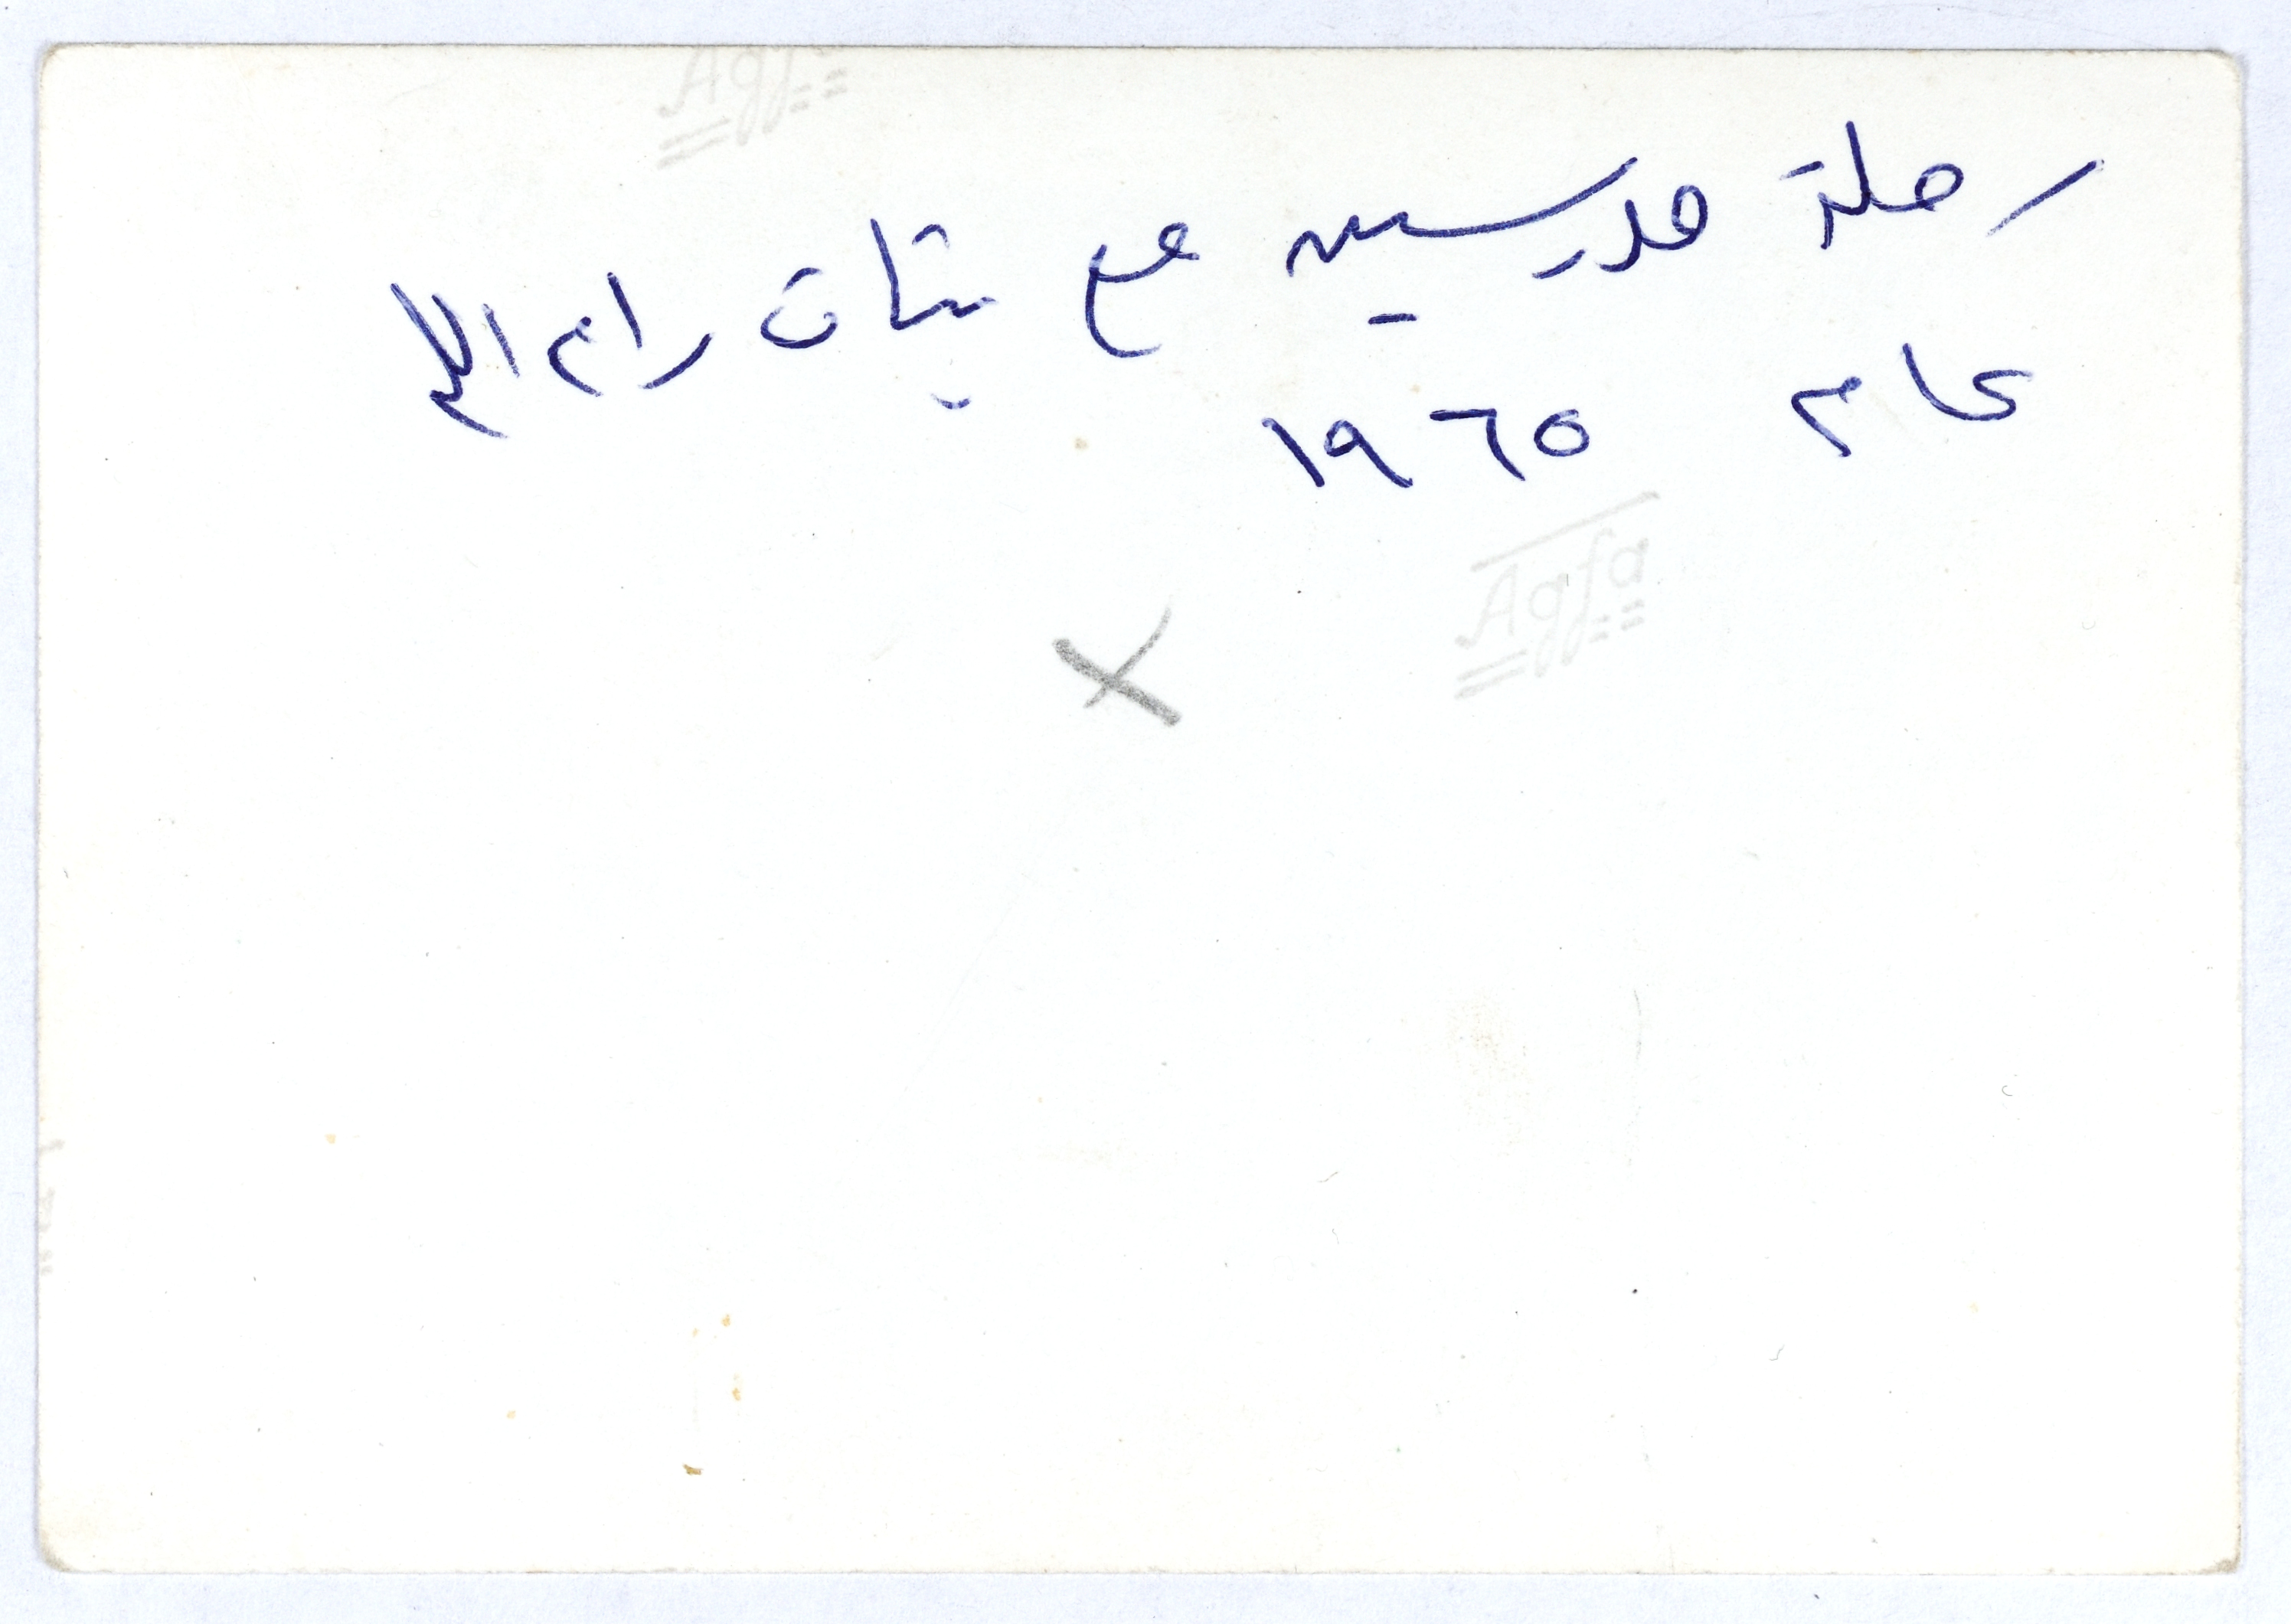 Agfa
رحلة مدرسية مع بنات رام الله
عام ١٩٦٥
Agfa